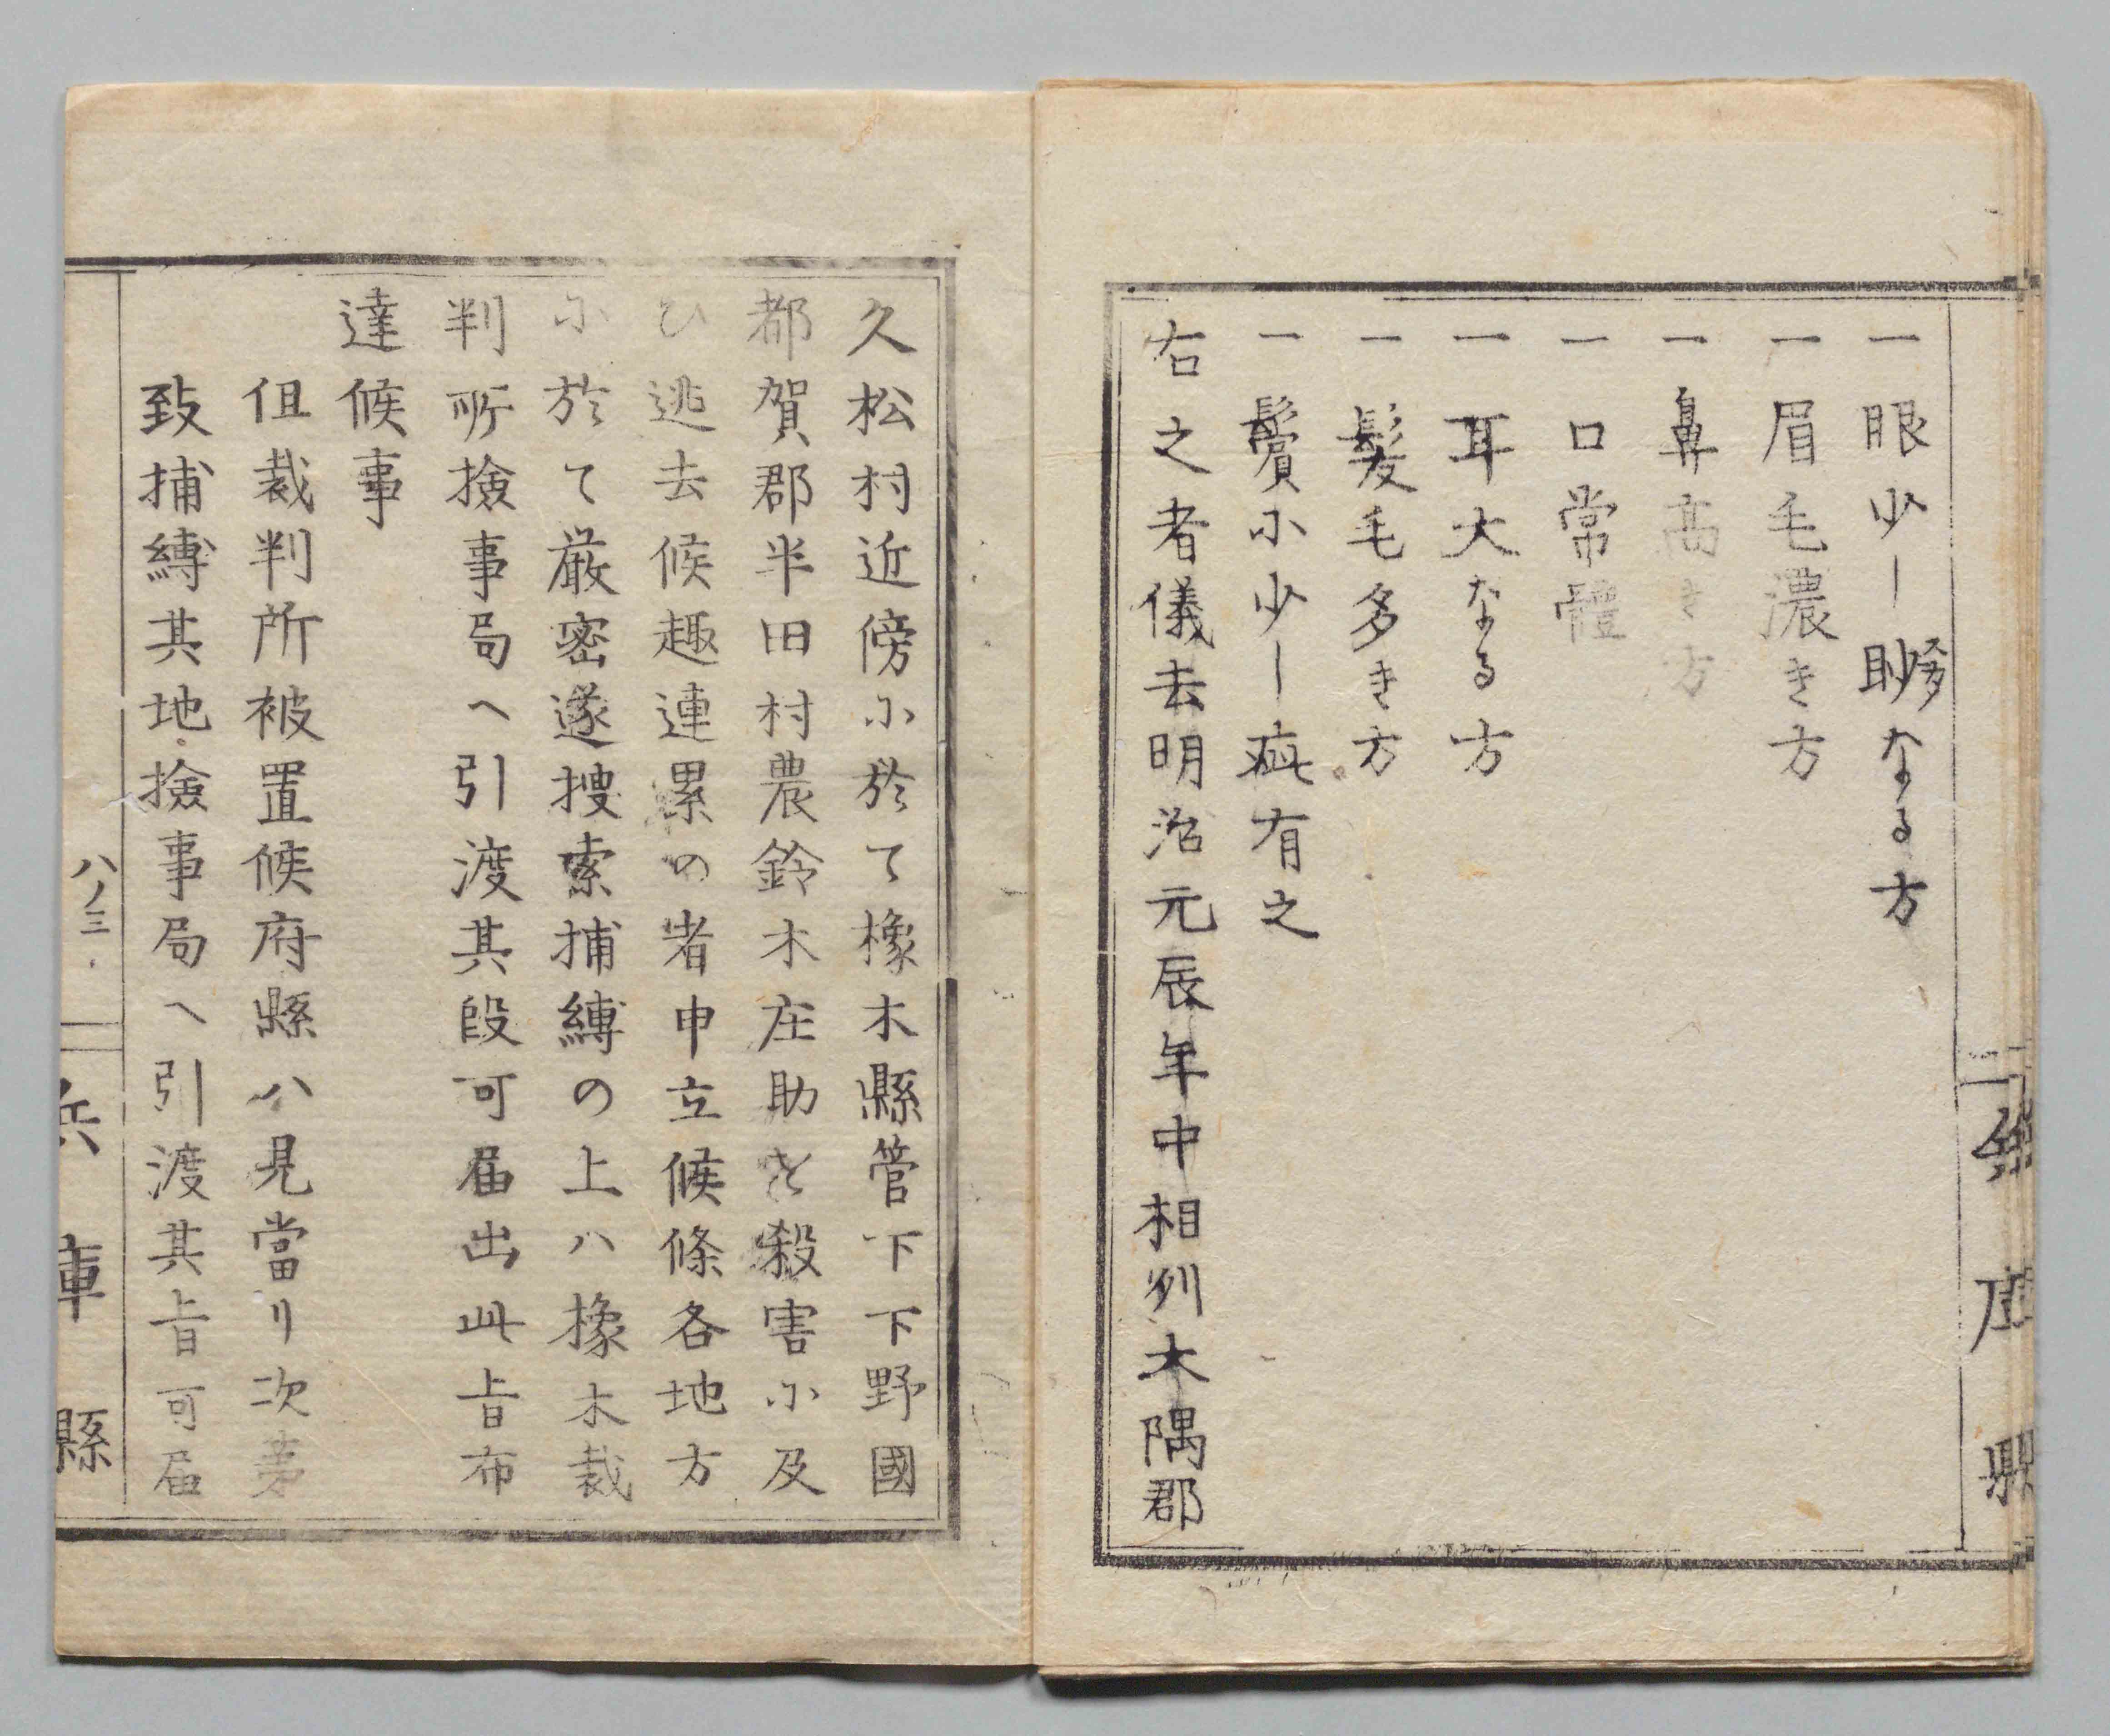 一眼少し眇なる方
一眉毛濃き方
一鼻高き方
一口常體
一耳大なる方
一髪毛多き方
一鬢小少し疵有之
右之者儀去明治元辰年中相列大隅郡
久松村近傍小於て橡木縣管下下野國
都賀郡半田村農鈴木庄助を殺害小及
ひ逃去候趣連累の者申立候條各地方
小於て厳密遂捜索捕縛の上ハ橡木裁
判所撿事局へ引渡其段可届出此旨布
達候事
但裁判所被置候府縣ハ見當リ次第
致捕縛其地撿事局へ引渡其旨可届
八ノ三
兵庫縣